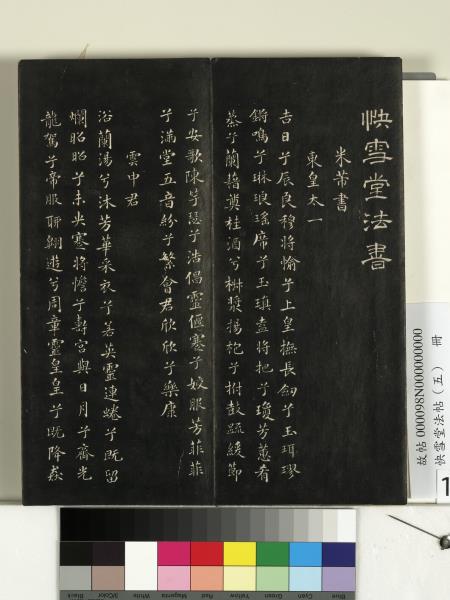 快雪堂法書
米芾書
東皇太一
吉日兮辰良穆將愉兮上皇撫長劍兮玉珥璆
鏘鳴兮琳琅瑤席兮玉瑱盍將把兮瓊芳蕙肴
蒸兮蘭藉奠桂酒兮椒漿揚枹兮拊鼓疏緩節
兮安歌陳竽瑟兮浩倡靈偃蹇兮姣服芳菲菲
兮滿堂五音紛兮繁會君欣欣兮樂康
雲中君
浴蘭湯兮沐芳華采衣兮若英靈連蜷兮既留
爛昭昭兮未央蹇將憺兮壽宮與日月兮齊光
龍駕兮帝服聊翱遊兮周章靈皇皇兮既降猋
故帖 000098N000000000
快雪堂法帖（五） 冊
1
Blue Cyan Green Yellow Red Magenta White 3/Color Black